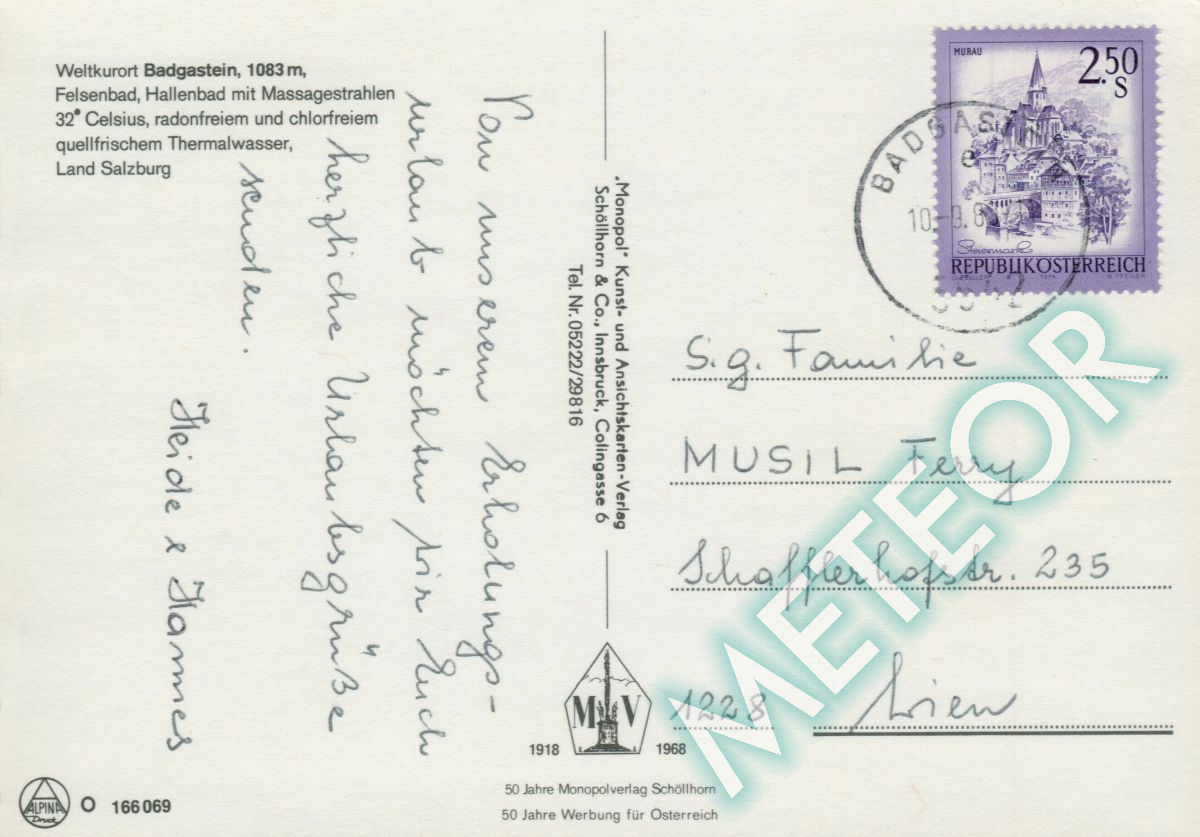 Weltkurort Badgastein, 1083 m,
Felsenbad, Hallenbad mit Massagestrahlen
32° Celsius, radonfreiem und chlorfreiem
quellfrischem Thermalwasser,
Land Salzburg
Von unserem Erholungs-
urlaub möchten wir Euch
herzliche Urlaubsgrüße
senden.
Heide & Hannes
„Monopol“ Kunst- und Ansichtskarten-Verlag
Schöllhorn & Co., Innsbruck, Colingasse 6
Tel. Nr. 05222/29816
MURAU
2.50
S
Steiermark
REPUBLIK ÖSTERREICH
BADGASTEIN
e
10.-9.8
S.g. Familie
MUSIL Ferry
Schafflerhofstr. 235
1228 Wien
METEOR
M V
1918 1968
50 Jahre Monopolverlag Schöllhorn
50 Jahre Werbung für Österreich
ALPINA
Druck
O 166 069